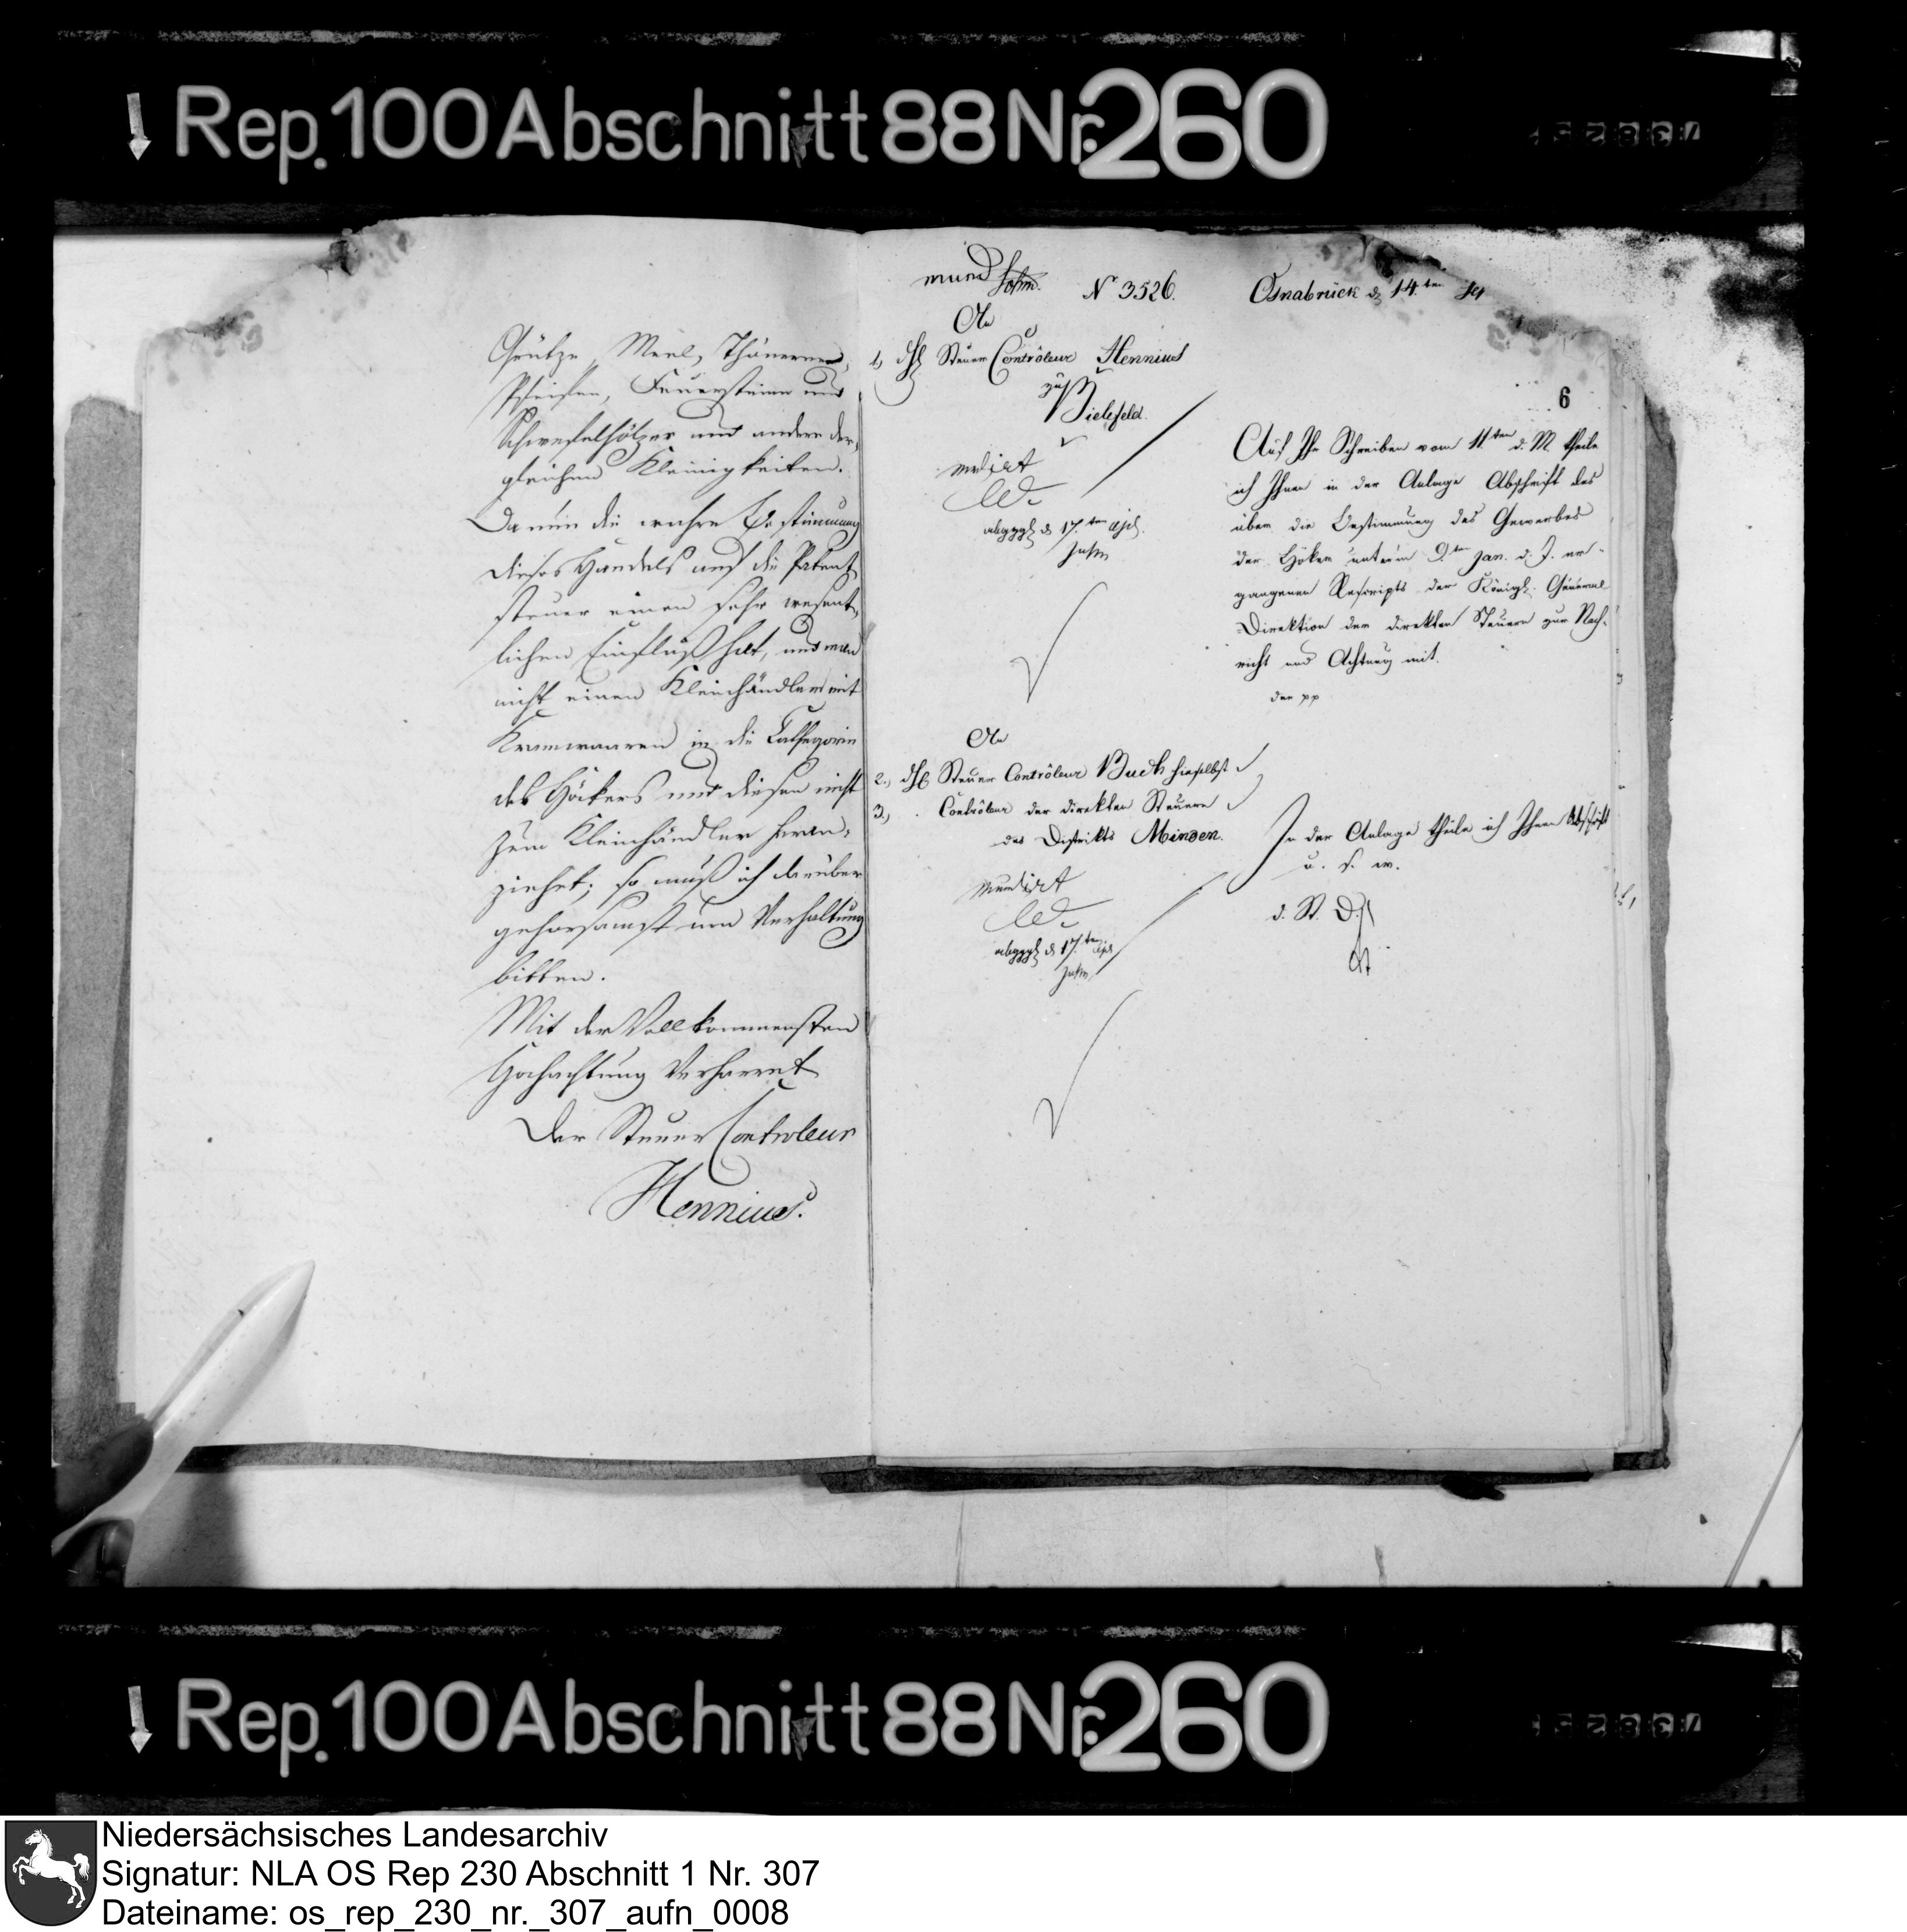 Rep. 100 Abschnitt 88 Nr. 260
Grütze, Meel, Thönernen
Pfeifen, Feuersteine und
Schwefelhölzer und andere der,
gleichen Kleinigkeiten.
Da nun die wahre Bestimmung
dieses Handels auf die Patent
steuer einen sehr wesent,
lichen Einfluß hat, und man
nicht einen Kleinhändler mit
Kramwaaren in die Cathegorie
des Höckers und diesen nicht
zum Kleinhändler heran,
ziehet; so muß ich darüber
gehorsamst um Verhaltung
bitten.
Mit der Vollkommensten
Hochachtung Verharret
Der Steuer Controleur
Hennius.
mund
N 3526.
Osnabrück d 14ten
An
1, Steuer Contrôleur Hennius
zu
Bielefeld.
6
mundirt
abgegg d 17ten
Auf Ihr Schreiben vom 11ten d. M. theile
ich Ihnen in der Anlage Abschrift des
über die Bestimmung des Gewerbes
der Höker unterm 9ten Jan. d. J. er-
gangenen Rescripts der Königl. General
Direktion der direkten Steuern zur Nach-
richt und Achtung mit.
der pp
An
2., Steuer Contrôleur Buch hieselbst
3., Contrôleur der direkten Steuern
des Distrikts Minden.
In der Anlage theile ich Ihnen Abschrift
u. s. w.
mundirt
abgegg d 17ten
d. St. D.
Rep. 100 Abschnitt 88 Nr. 260
Niedersächsisches Landesarchiv
Signatur: NLA OS Rep 230 Abschnitt 1 Nr. 307
Dateiname: os_rep_230_nr._307_aufn_0008